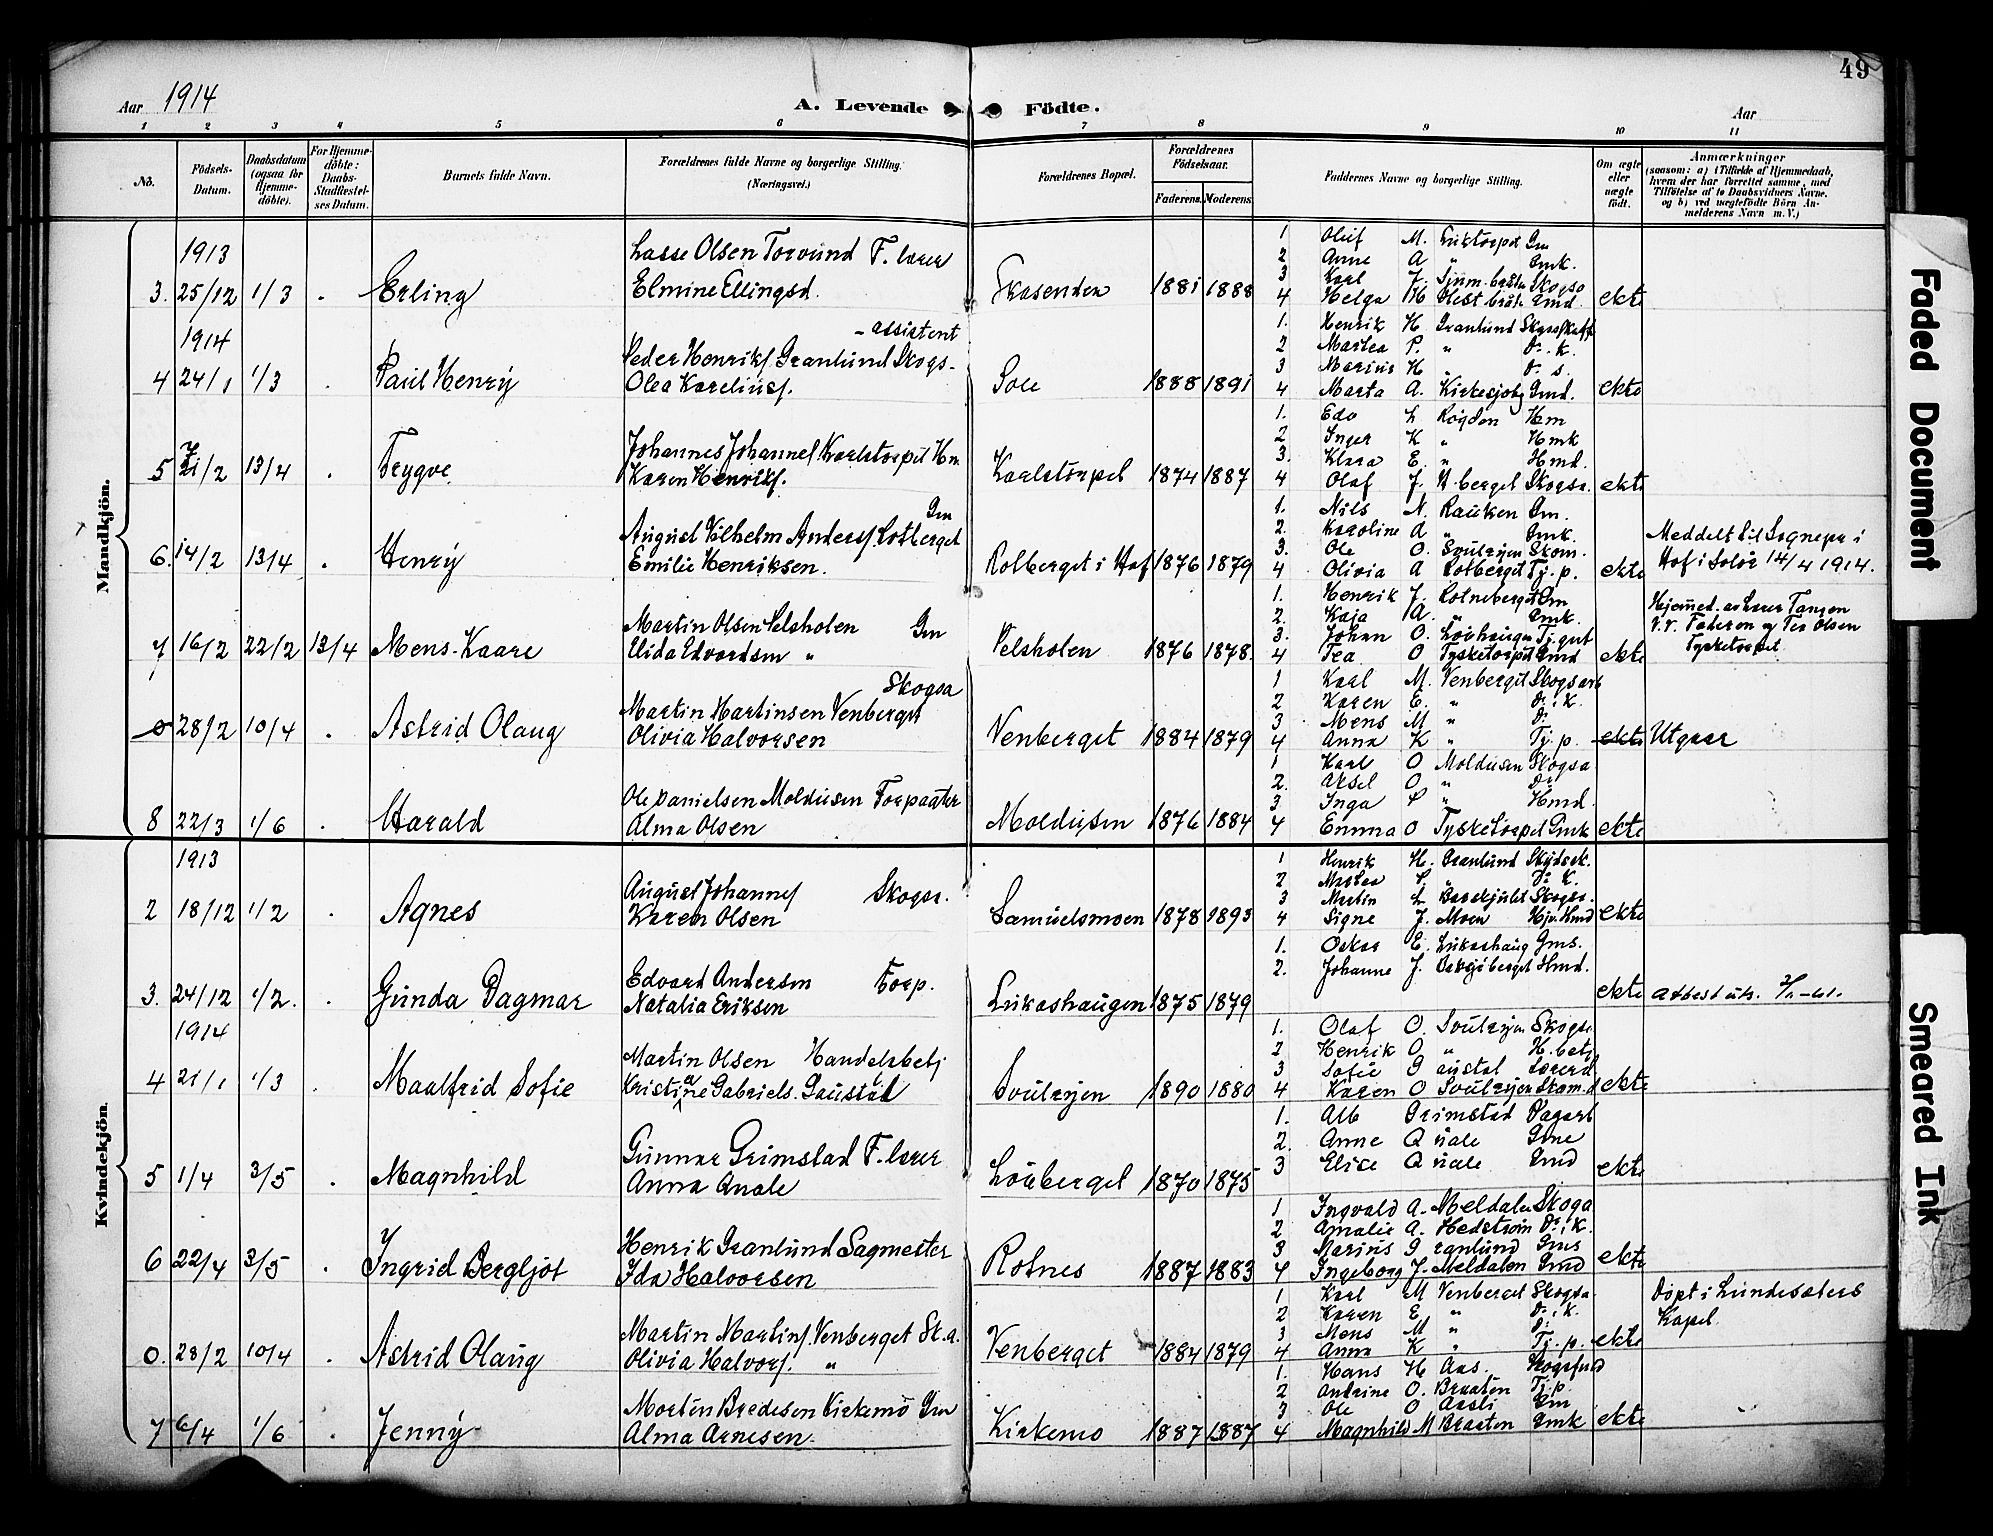 49
Aar 1914
A. Levende Födte.
Aar
1 2 3 4 5 6 7 8 9 10 11
No. Födsels-Datum. Daabsdatum (ogsaa for Hjemme-döbte). For Hjemme-döbte: Daabs-Stadfæstel-ses Datum. Barnets fulde Navn. Forældrenes fulde Navne og borgerlige Stilling. (Næringsvei.) Forældrenes Bopæl. Forældrenes Födselsaar. Faderens. Moderens. Faddernes Navne og borgerlige Stilling. Om ægte eller uægte födt. Anmærkninger (saasom: a) i Tilfælde af Hjemmedaab, hvem der har forrettet samme, med Tilföielse af to Daabsvidners Navne. og b) ved uægtefödte Börn An-melderens Navn m. V.)
Mandkjön.
1913
Lasse Olsen Torvund F. lærer
3. 25/12 1/3 Erling Elmine Ellingsd. 1881 1888 ekte
1 Oluf M.
2 Anne A " Gmk.
3 Karl J.
4 Helga
1914
- assistent
Peder Henriks. Granlund Skogs-
4 24/1 1/3 Paul Henry Olea Kareliusf. 1888 1891 ekte
1. Henrik H. Granlund
2 Martea P. "
3 Marius H
4 Marta A. Gmd.
Johannes Johannes. Karlstorpet Hm.
5 21/2 13/4 Trygve Karen Henriks. Karlstorpet 1874 1887 ekte
1. Edo L Rögden Hm
2 Inger K " Hmk
3. Klara E. " Hmd.
4 Olaf J.
Gm
August Vilhelm Anders.
6. 14/2 13/4 Henry Emilie Henriksen. Rotberget i Hof 1876 1879 ekte
1. Nils N. Rauken Gm.
2. Karoline A " Gmk.
3. Ole O. Svulryen
4 Olivia A Rotberget Tj. p.
Meddelt til Sognepr i
Hof i Solör 14/4 1914.
Martin Olsen Velsholen Gm
7 16/2 22/2 13/4 Mens Kaare Elida Edvardsen " Velsholen 1876 1878. ekte
1. Henrik J. Rotneberget Gm
2. Kaja A. " Gmk.
3. Johan O. Tj. gut
4 Tea O Tysketorpet Gmd
Hjemmed. av Lærer Tangen
V. v. Faderen og Tea Olsen
Tysketorpet
Skogsa
Martin Martinsen Venberget
0 28/2 10/4 Astrid Olaug Olivia Halvorsen Venberget 1884 1879 ekte Utgaar
1 Karl M. Venberget
2 Karen E. " Do. K.
3 Mens M " Do
4 Anna K " Tj. p.
Ole Danielsen Moldusen
8 22/3 1/6 Harald Alma Olsen Moldusen 1876 1884 ekte
1 Karl O Moldusen Skogsa
2. Aksel O " Do
3 Inga " Hmd.
4 Emma O Tysketorpet Gmk
Kvindekjön.
1913
August Johannes. Skogsa.
2 18/12 1/2 Agnes Karen Olsen Samuelsmoen 1878 1893 ekte
1 Henrik H. Granlund
2 Do K.
3 Martin L
4 Signe J. Moen
Edvard Andersen Torp.
3. 24/12 1/2. Gunda Dagmar Natalia Eriksen Lukashaugen 1875 1879 ekte
1. Oskar E. Lukashaug Gms.
2. Johanne J. Hmd.
1914
Martin Olsen Handelsbetj
4 21/1 1/3 Maalfrid Sofie Kristine Gabriels. Gaustad Svulryen 1890 1880 ekte
1. Olaf O. Svulryen Skogsa
2 Henrik O " H. betj
3 Sofie Gaustad Lærerd
4 Karen O Svulryen
Gunnar Grimstad F. lærer
5 1/4 3/5 Magnhild Anna Löuberget 1870 1875 ekte
1. Grimstad
2. Anne Quale Gme
3 Elise Quale Gmd
Henrik Granlund Sagmester
6 22/4 3/5 Ingrid Bergljot Ida Halvorsen Rotnes 1887 1883 ekte
1 Ingvald A. Meldalen Skoga
2 Amalie A. Hedström Do. K.
3 Marius Granlund Gms
4 Ingeborg J. Meldalen Gmd
Martin Martins. Venberget Sk. a.
0. 28/2 10/4 Astrid Olaug Olivia Halvors. " Venberget 1884 1879 ekte
1 Karl M Venberget Skogsa.
2 Karen E. " Do. K.
3 Mens M " Do
4 Anna K " Tj. p.
Döpt i Lundesæters
Kapel.
Morten Bredesen Kirkemo Gm
7 6/4 1/6 Jenny Alma Arnesen. Kirkemo 1887 1887 ekte
1. Hans H Aas.
2 Andrine O. Braaten Tj. p.
3 Ole O Aasli Gm
4 Magnhild M Braaten Gmk
Faded Document
Smeared Ink